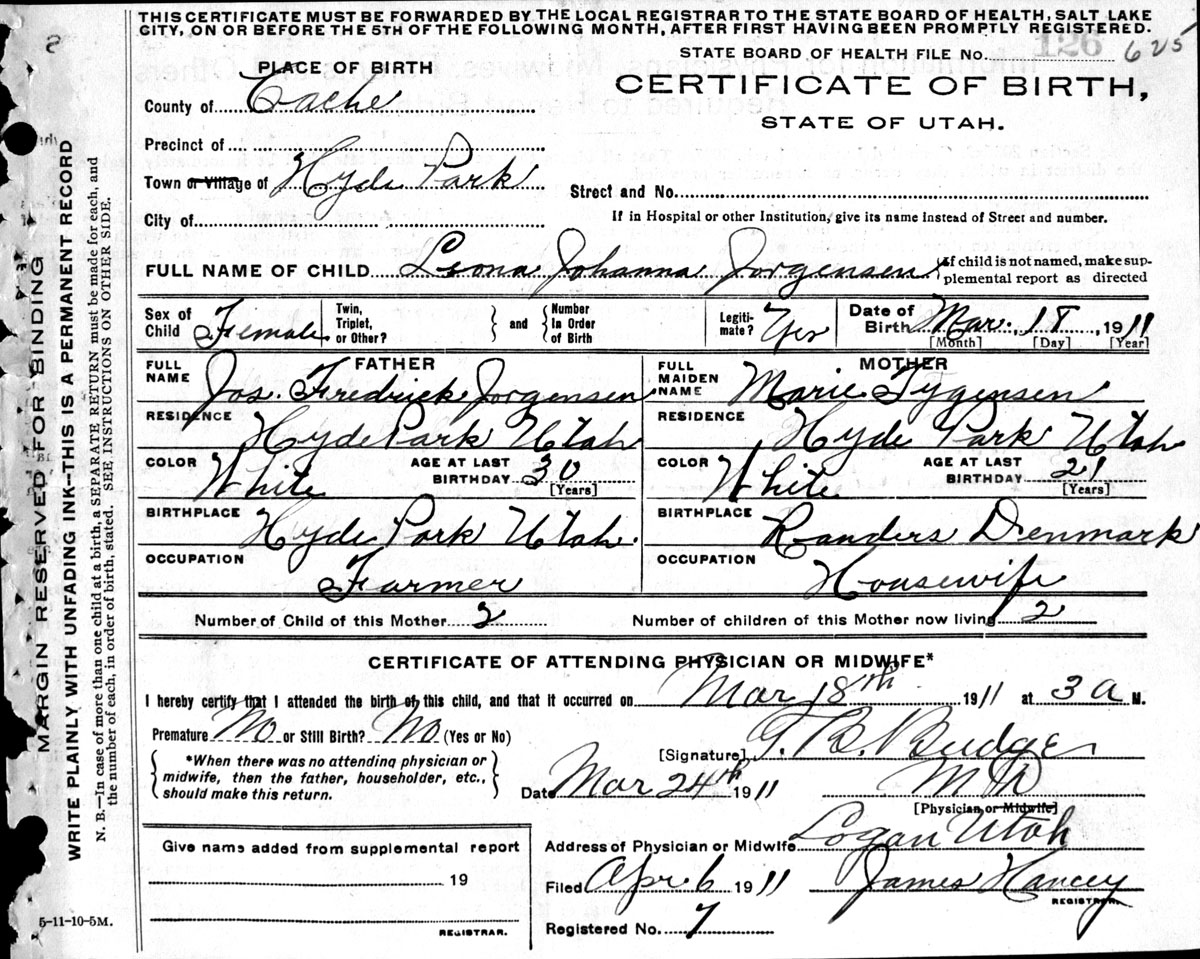 THIS CERTIFICATE MUST BE FORWARDED BY THE LOCAL REGISTRAR TO THE STATE BOARD OF HEALTH, SALT LAKE
CITY, ON OR BEFORE THE 5TH OF THE FOLLOWING MONTH, AFTER FIRST HAVING BEEN PROMPTLY REGISTERED.
STATE BOARD OF HEALTH FILE No. 126 625
PLACE OF BIRTH
CERTIFICATE OF BIRTH,
STATE OF UTAH.
County of Cache
Precinct of
Town or Village of Hyde Park
Street and No.
City of
If in Hospital or other Institution, give its name instead of Street and number.
FULL NAME OF CHILD Leona Johanna Jorgensen
If child is not named, make sup-
plemental report as directed
Sex of Child Female
Twin, Triplet, or Other?
and
Number In Order of Birth
Legiti-mate? Yes
Date of Birth Mar. 18, 1911
[Month] [Day] [Year]
FATHER
FULL NAME Jos. Fredrick Jorgensen
MOTHER
FULL MAIDEN NAME Marie Tygensen
RESIDENCE Hyde Park Utah
RESIDENCE Hyde Park Utah
COLOR White AGE AT LAST BIRTHDAY 30 [Years]
COLOR White AGE AT LAST BIRTHDAY 21 [Years]
BIRTHPLACE Hyde Park Utah.
BIRTHPLACE Randers Denmark
OCCUPATION Farmer
OCCUPATION Housewife
Number of Child of this Mother 2
Number of children of this Mother now living 2
CERTIFICATE OF ATTENDING PHYSICIAN OR MIDWIFE*
I hereby certify that I attended the birth of this child, and that it occurred on Mar 18th 1911 at 3 a M.
Premature No or Still Birth? No (Yes or No)
[Signature] T. B. Budge
*When there was no attending physician or
midwife, then the father, householder, etc.,
should make this return.
Date Mar 24th 1911
M D
[Physician or Midwife]
Give name added from supplemental report
19
REGISTRAR.
Address of Physician or Midwife Logan Utah
Filed Apr 6 1911 James Hancey
REGISTRAR.
Registered No. 7
5-11-10-5M.
MARGIN RESERVED FOR BINDING
WRITE PLAINLY WITH UNFADING INK—THIS IS A PERMANENT RECORD
N. B.—In case of more than one child at a birth, a SEPARATE RETURN must be made for each, and
the number of each, in order of birth, stated. SEE INSTRUCTIONS ON OTHER SIDE.